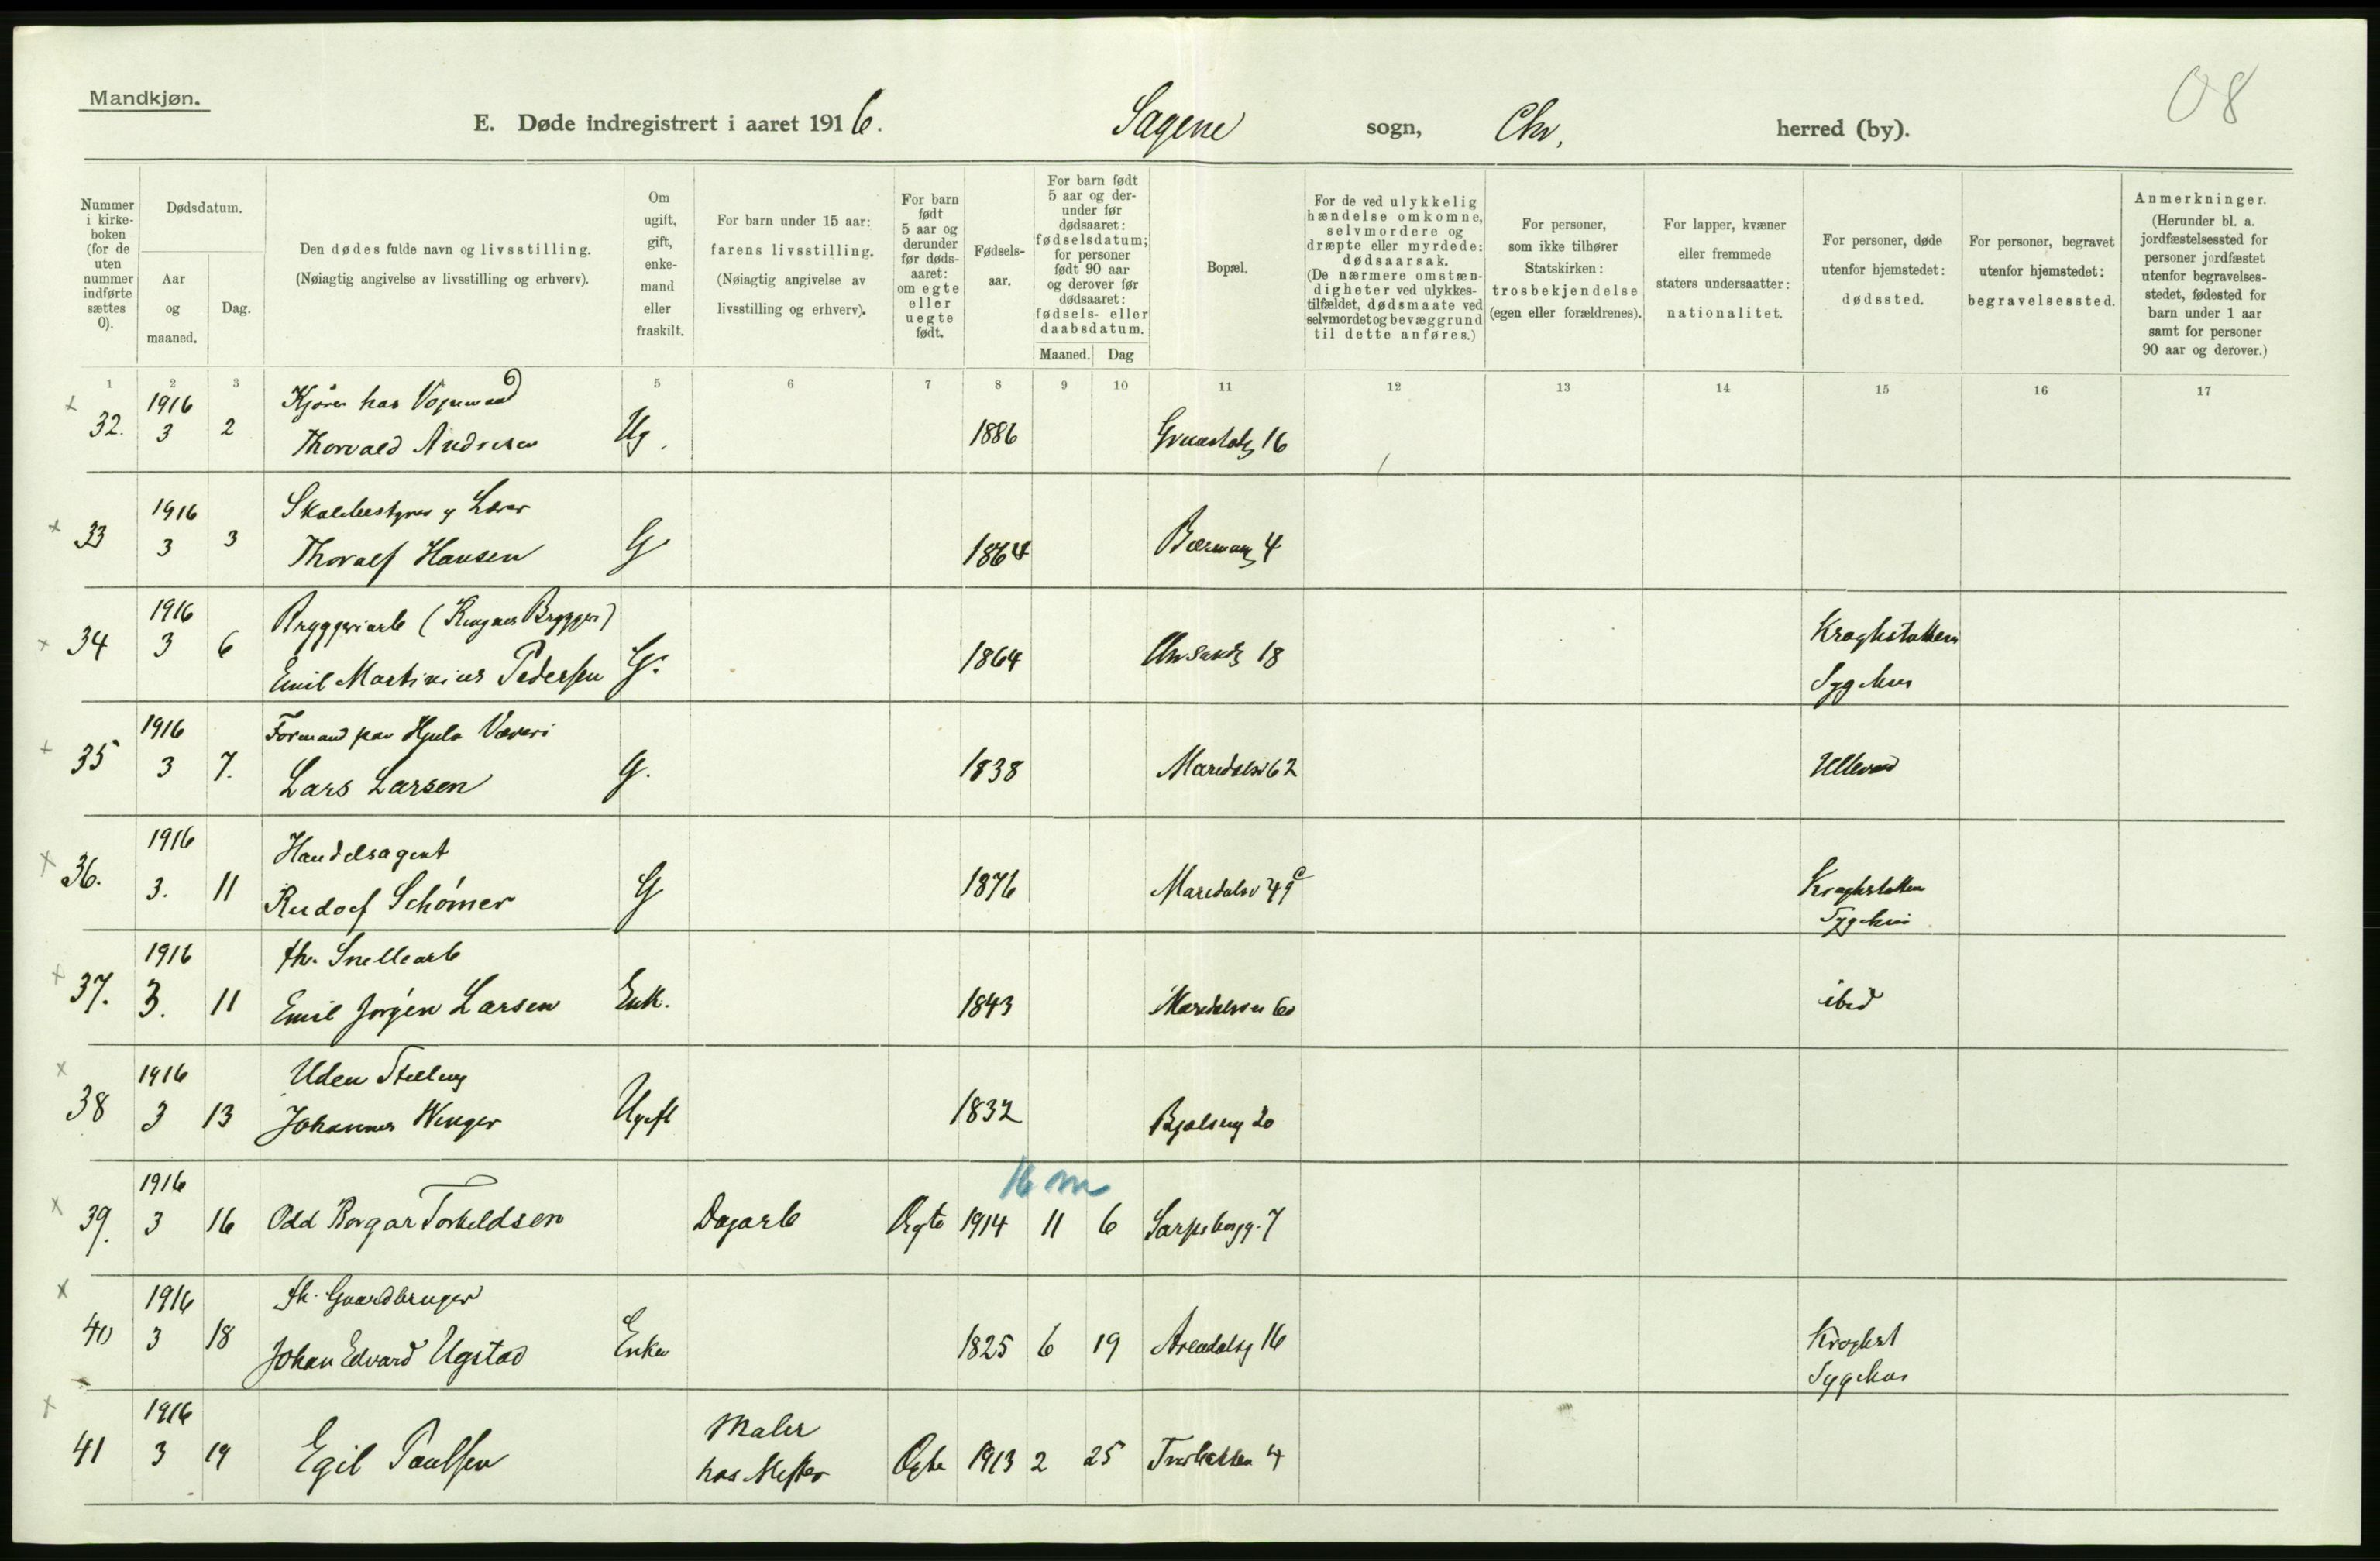 Mandkjøn.
08
E. Døde indregistrert i aaret 1916. Sagene sogn, Chr, herred (by).
Nummer i kirkeboken (for de uten nummer indførte sættes 0).
Dødsdatum.
Aar og maaned.
Dag.
Den dødes fulde navn og livsstilling. (Nøiagtig angivelse av livsstilling og erhverv).
Om ugift, gift, enkemand eller fraskilt.
For barn under 15 aar: farens livsstilling. (Nøiagtig angivelse av livsstilling og erhverv).
For barn født 5 aar og derunder før dødsaaret: om egte eller uegte født.
Fødselsaar.
For barn født 5 aar og derunder før dødsaaret: fødselsdatum; for personer født 90 aar og derover før dødsaaret: fødsels- eller daabsdatum.
Maaned. Dag
Bopæl.
For de ved ulykkelig hændelse omkomne, selvmordere og dræpte eller myrdede: dødsaarsak. (De nærmere omstændigheter ved ulykkestilfældet, dødsmaate ved selvmordet og bevæggrund til dette anføres.)
For personer, som ikke tilhører Statskirken: trosbekjendelse (egen eller forældrenes).
For lapper, kvæner eller fremmede staters undersaatter: nationalitet.
For personer, døde utenfor hjemstedet: dødssted.
For personer, begravet utenfor hjemstedet: begravelsessted.
Anmerkninger. (Herunder bl. a. jordfæstelsessted for personer jordfæstet utenfor begravelsesstedet, fødested for barn under 1 aar samt for personer 90 aar og derover.)
1 2 3 5 6 7 8 9 10 11 12 13 14 15 16 17
1916 Kjører hos Vognmand
32. 3 2 Thorvald Andresen Ug. 1886 16
1916 Skolebestyrer og Lærer
33 3 3 Thoralf Hansen G. 1864 4
1916 Bryggeriarb (Ringnes Bryggeri) Kroghstøtten
34 3 6 Emil Martinius Pedersen G. 1864 Chrsandg 18 Sygehus
1916 Formand paa Hjula Væveri
35 3 7. Lars Larsen G. 1838 Maridalsv 62 Ullevaal
1916 Handelsagent
36. 3. 11 Rudolf Schømer G 1876 Maridalsv 49c Kroghstøtten
Sygehus
1916 fhv. Snellearb
37. 3. 11 Emil Jørgen Larsen Enk. 1843 Maridalsvn 60 ibid
1916 Uden Stilling
38 3 13 Johannes Winger Ugift 1832 Bjølseng 20
1916 16 m
39. 3 16 Odd Borgar Torkeldsen Dagarb Ægte 1914 11 6 Sarpsborgg. 7
1916 fh. Gaardbruger
40 3 18 Johan Edvard Ugstad Enkem 1825 6 19 Arendalsg 16 Kroghst
Sygehus
1916 Maler
41 3 19 Egil Paulsen hos Mester Ægte 1913 2 25 Tverbakken 4